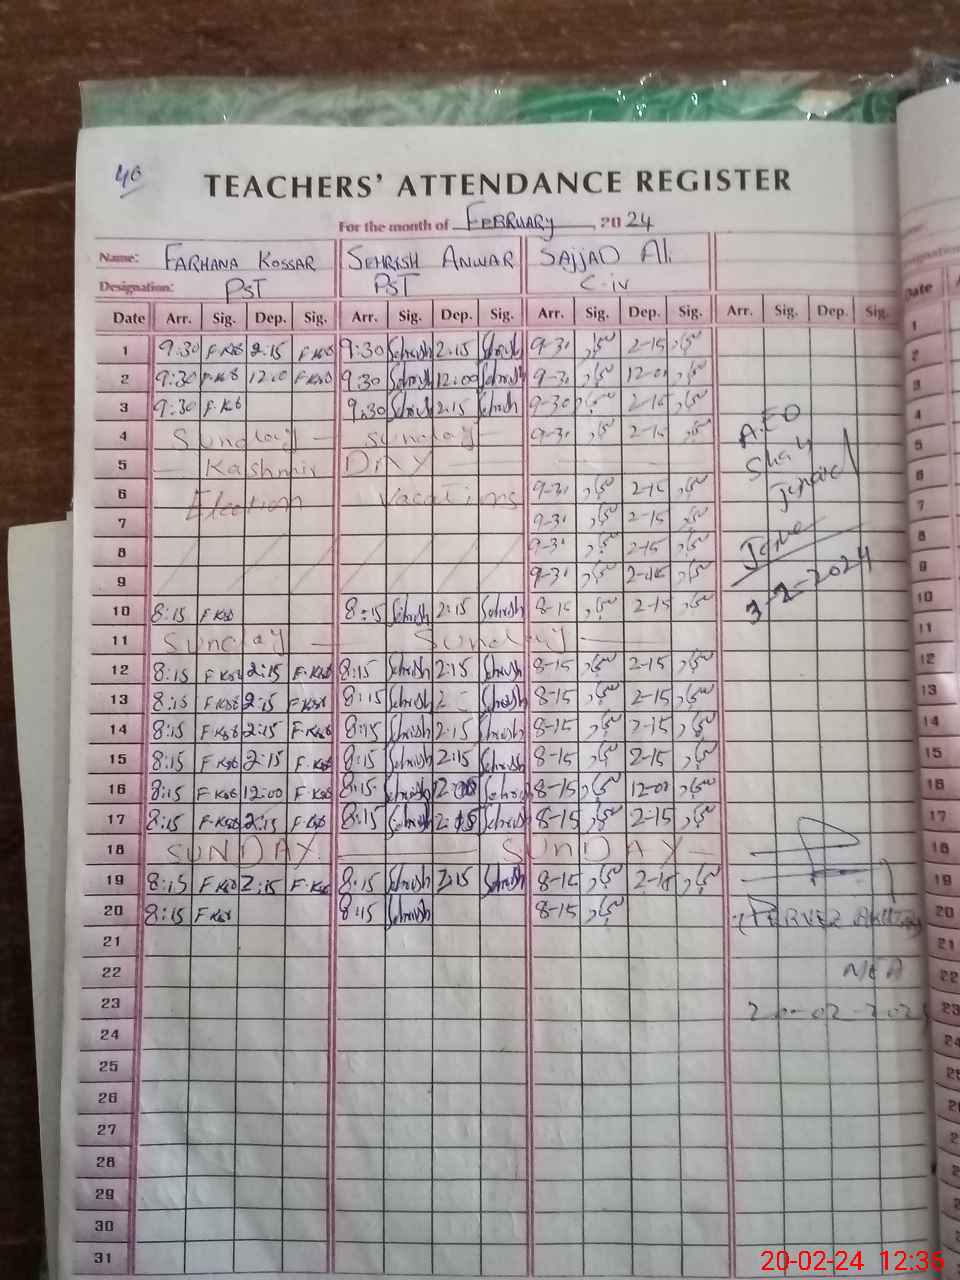 46
TEACHERS' ATTENDANCE REGISTER
For the month of FEBRUARY, 2024
Name: FARHANA KOSSAR SEHRISH ANWAR SAJJAD Ali
Designation: PST PST C-iv
Date Arr. Sig. Dep. Sig. Arr. Sig. Dep. Sig. Arr. Sig. Dep. Sig. Arr. Sig. Dep. Sig.
1 9:30 F.Kss 2:15 F.Kss 9:30 Sehrish 2:15 Sehrish 9-31 2-15
2 9:30 F.Kss 12:00 F.Kss 9:30 Sehrish 12:00 Sehrish 9-31 12-01
3 9:30 F.Kss 9:30 Sehrish 2:15 Sehrish 9-30 2-15
4 Sunday Sunday 9-31 2-15
5 Kashmir DAY
6 Election Vacations 9-31 2-15
7 9-31 2-15
8 9-31 2-15
9 9-31 2-15
10 8:15 F.Kss 8:15 Sehrish 2:15 Sehrish 8-15 2-15
11 Sunday Sunday
12 8:15 F.Kss 2:15 F.Kss 8:15 Sehrish 2:15 Sehrish 8-15 2-15
13 8:15 F.Kss 2:15 F.Kss 8:15 Sehrish 2 Sehrish 8-15 2-15
14 8:15 F.Kss 2:15 F.Kss 8:15 Sehrish 2:15 Sehrish 8-15 2-15
15 8:15 F.Kss 2:15 F.Kss 8:15 Sehrish 2:15 Sehrish 8-15 2-15
16 8:15 F.Kss 12:00 F.Kss 8:15 Sehrish Sehrish 8-15 12-01
17 8:15 F.Kss 2:15 F.Kss 8:15 Sehrish 2:15 Sehrish 8-15 2-15
18 SUNDAY SUNDAY
19 8:15 F.Kss 2:15 F.Kss 8:15 Sehrish 2:15 Sehrish 8-15 2-15
20 8:15 F.Kss 8:15 Sehrish 8-15
21
22
23
24
25
26
27
28
29
30
31
A.EO
3-2-2024
MEA
20-02-202
Date
1
2
3
4
5
6
7
8
9
10
11
12
13
14
15
16
17
18
19
20
21
22
23
24
20-02-24 12:36